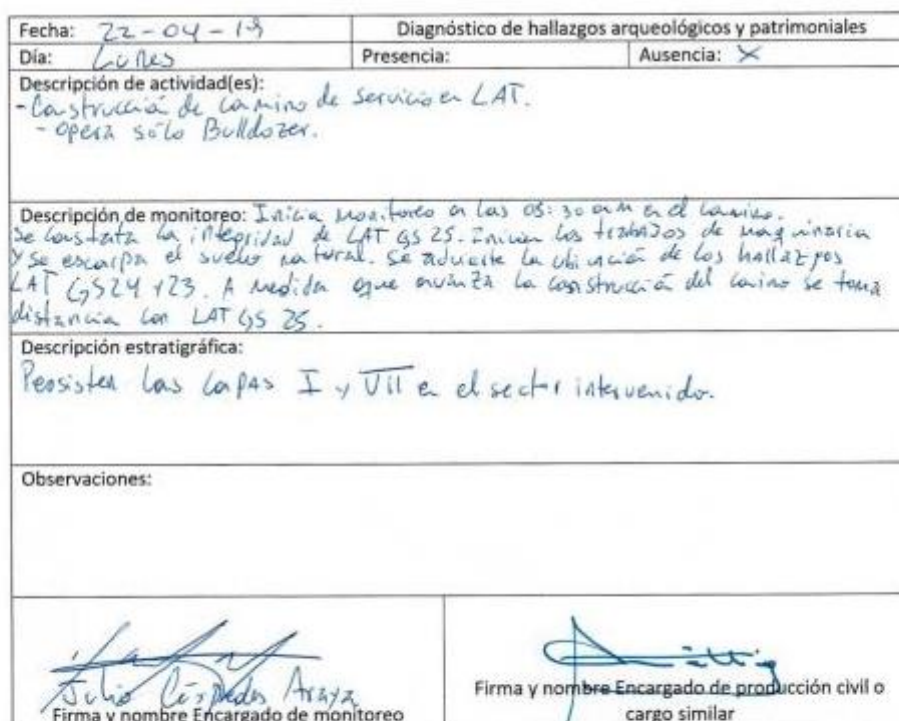 Fecha: 22-04-19 Diagnóstico de hallazgos arqueológicos y patrimoniales
Día: Lunes Presencia: Ausencia: X
Descripción de actividad(es):
- Construcción de camino de servicio en LAT.
- Opera sólo Bulldozer.
Descripción de monitoreo: Inicia monitoreo a las 08:30 am en el camino.
Se constata la integridad de LAT GS 25. Inician los trabajos de maquinaria
y se escarpa el suelo natural. Se advierte la ubicación de los hallazgos
LAT GS24 y 23. A medida que avanza la construcción del camino se toma
distancia con LAT GS 25.
Descripción estratigráfica:
Persisten las capas I y VII en el sector intervenido.
Observaciones:
Julio Céspedes Araya
Firma y nombre Encargado de monitoreo
Firma y nombre Encargado de producción civil o
cargo similar